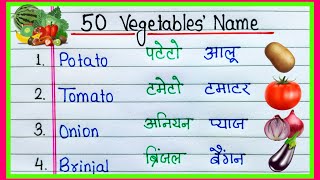 50 Vegetables' Name
1. Potato पटेटो आलू
2. Tomato टमेटो टमाटर
3. Onion अनियन प्याज
4. Brinjal ब्रिंजल बैंगन